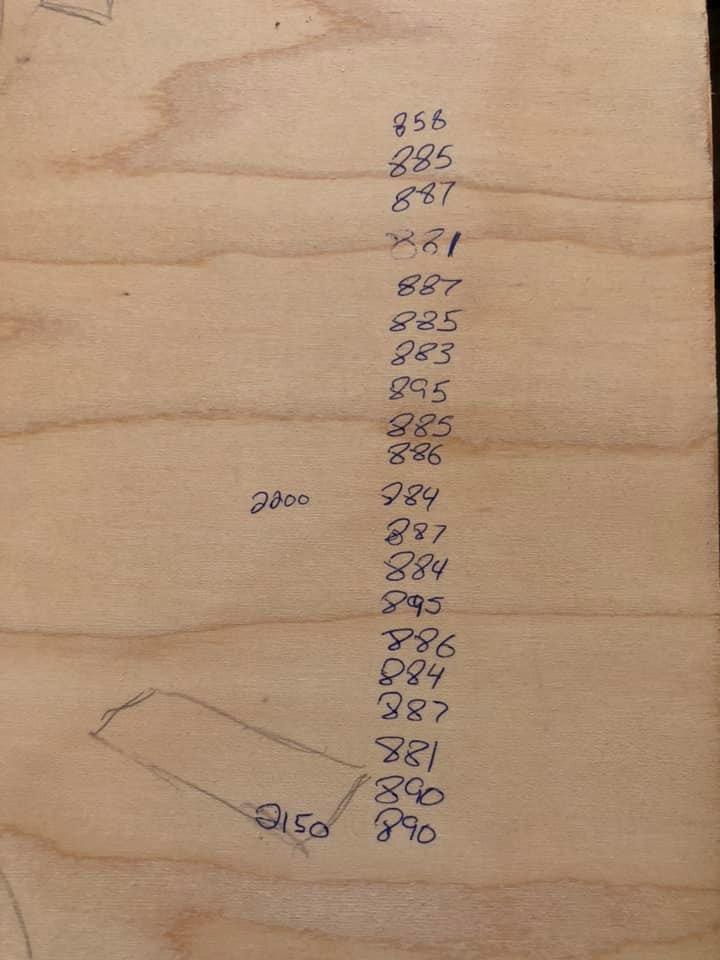 858
885
887
881
887
885
883
895
885
886
2200 884
887
884
895
886
884
887
881
890
2150 890